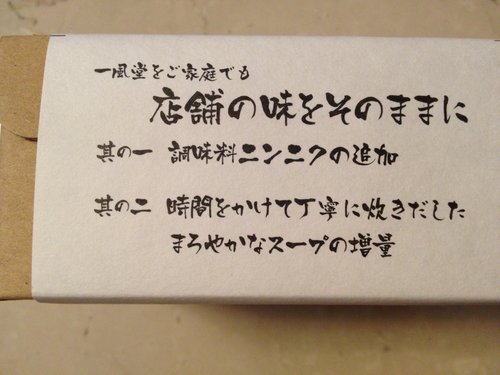 一風堂をご家庭でも
店舗の味をそのままに
其の一 調味料ニンニクの追加
其の二 時間をかけて丁寧に炊きだした
まろやかなスープの増量